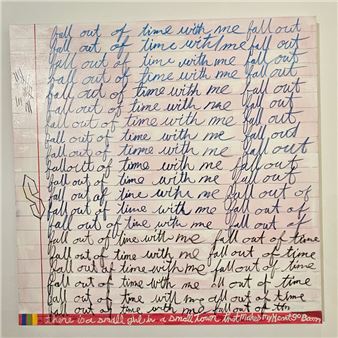 fall out of time with me fall out
fall out of time with me fall out
fall out of time with me fall out
fall out of time with me fall out
fall out of time with me fall out
fall out of time with me fall out
fall out of time with me fall out
fall out of time with me fall out
fall out of time with me fall out
fall out of time with me fall out
fall out of time with me fall out
fall out of time with me fall out of
fall out of time with me fall out of
fall out of time with me fall out of
fall out of time with me fall out of time
fall out of time with me fall out of time
fall out of time with me fall out of time
fall out of time with me fall out of time
fall out of time with me fall out of time
fall out of time with me fall out of
there is a small girl in a small town that makes my heart go Boom